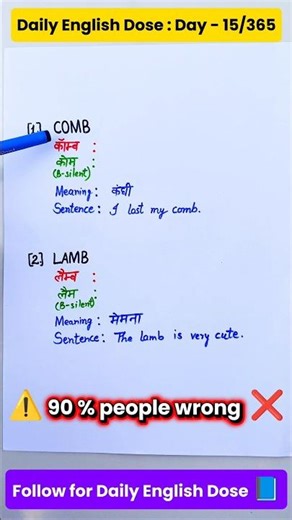 Daily English Dose : Day - 15/365
[1] COMB
कॉम्ब :
कोम :
(B-silent)
Meaning : कंघी
Sentence : I lost my comb.
[2] LAMB
लैम्ब :
लैम :
(B-silent)
Meaning : मेमना
Sentence : The lamb is very cute.
⚠️ 90 % people wrong ❌
Follow for Daily English Dose 📘